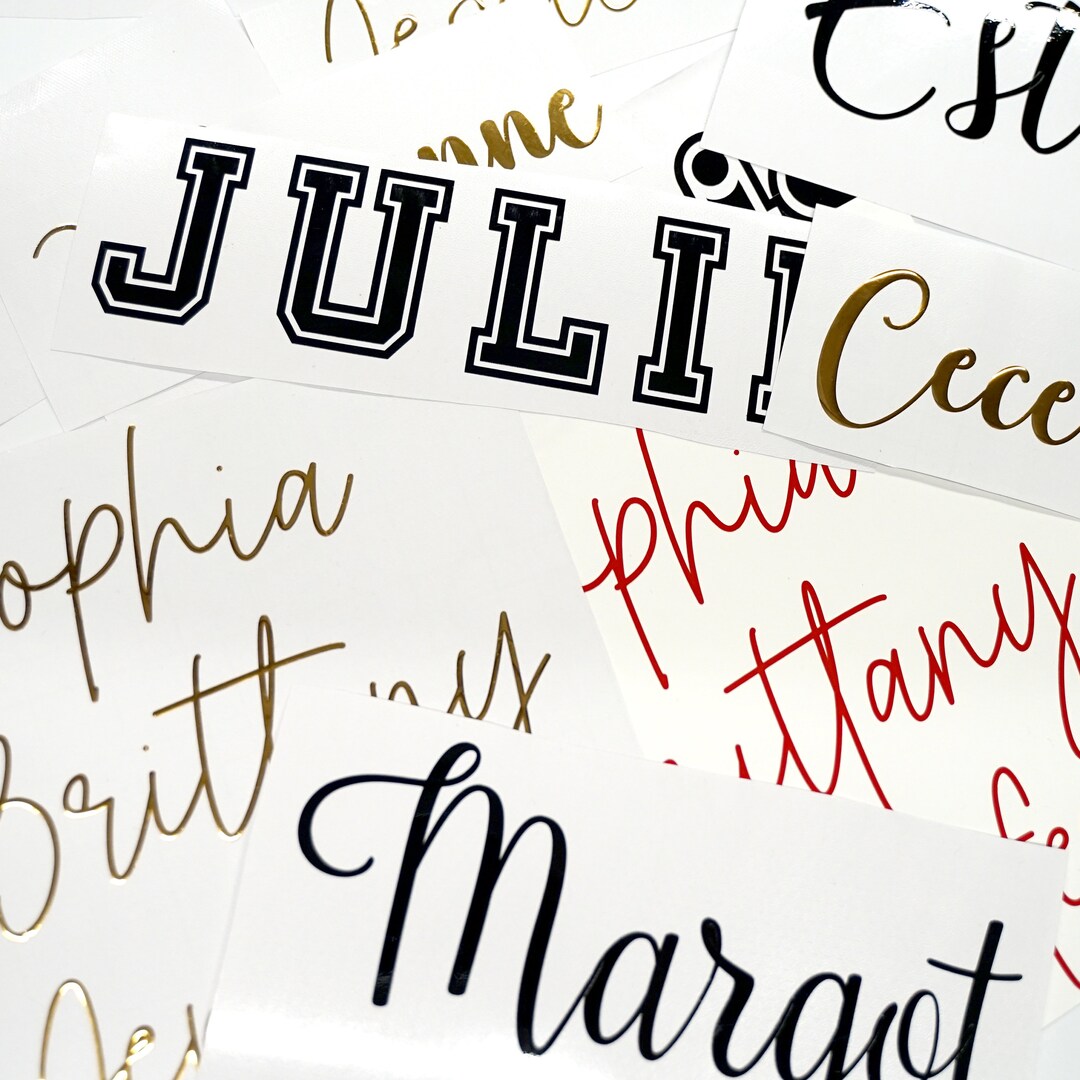 nne
JULI
Cece
ophia
phia
Brittany
ittany
Margot